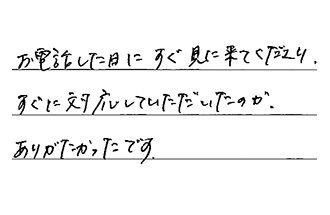 お電話した日に すぐ見に来てくださり、
すぐに対応していただいたのが、
ありがたかったです。